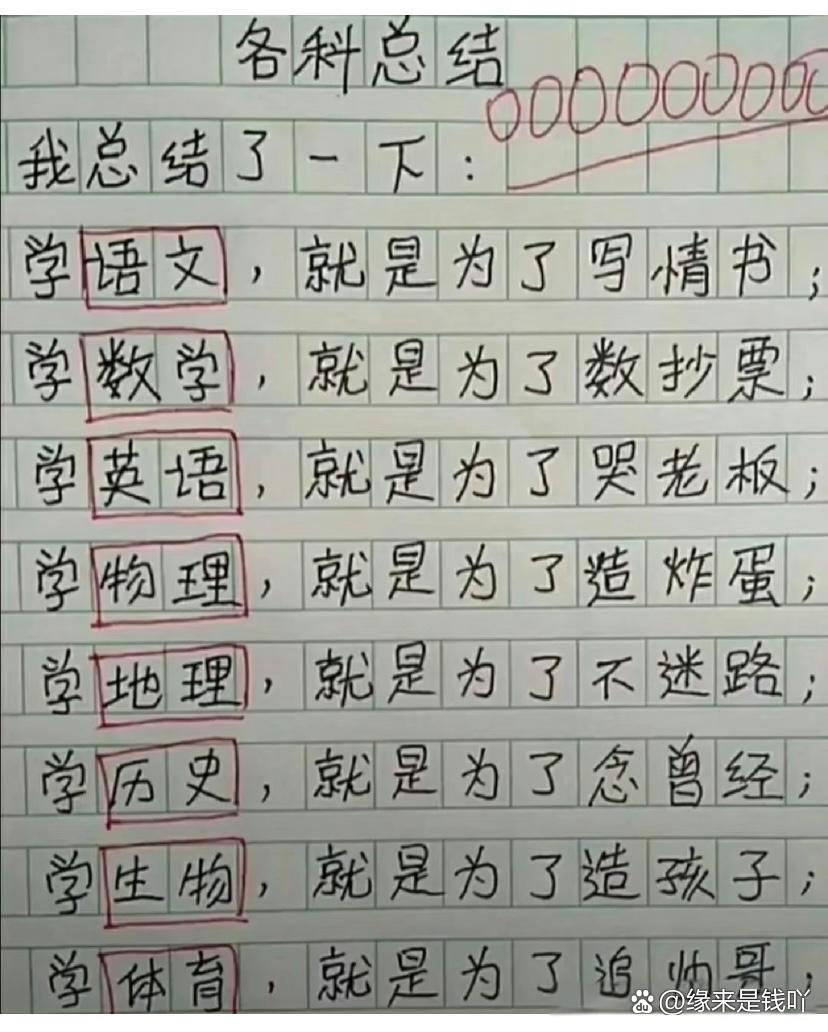 各科总结
我总结了一下：
学语文，就是为了写情书；
学数学，就是为了数抄票；
学英语，就是为了哭老板；
学物理，就是为了造炸蛋；
学地理，就是为了不迷路；
学历史，就是为了念曾经；
学生物，就是为了造孩子；
学体育，就是为了追帅哥；
@缘来是钱吖